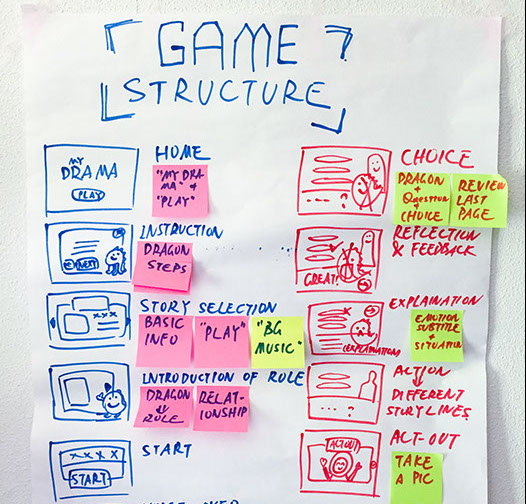 GAME
STRUCTURE
HOME
MY
DRAMA
PLAY
"MY DRA
MA" &
"PLAY"
INSTRUCTION
NEXT
DRAGON
STEPS
STORY SELECTION
XXX
BASIC
INFO
"PLAY"
"BG
MUSIC"
INTRODUCTION OF ROLE
DRAGON
ROLE
RELAT-
IONSHIP
START
XXXX
START
CHOICE
... ?
DRAGON
+
QUESTION
+
CHOICE
REVIEW
LAST
PAGE
REFLECTION
& FEEDBACK
GREAT!
EXPLAINATION
(EXPLAINATION)
EMOTION
SUBTITLE
+
SITUATION
ACTION
DIFFERENT
STORYLINES
... ?
ACT-OUT
ACTOUT
TAKE
A PIC